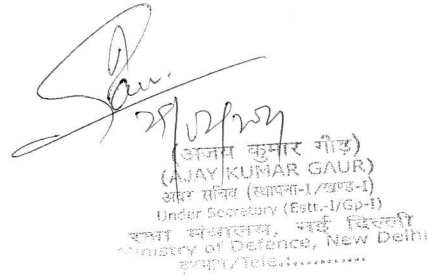 (अजय कुमार गौड़)
(AJAY KUMAR GAUR)
अवर सचिव (स्थापना-1/खण्ड-I)
Under Secretary (Estt.-I/Gp-I)
रक्षा मंत्रालय, नई दिल्ली
Ministry of Defence, New Delhi
दूरभाष/Tele.............